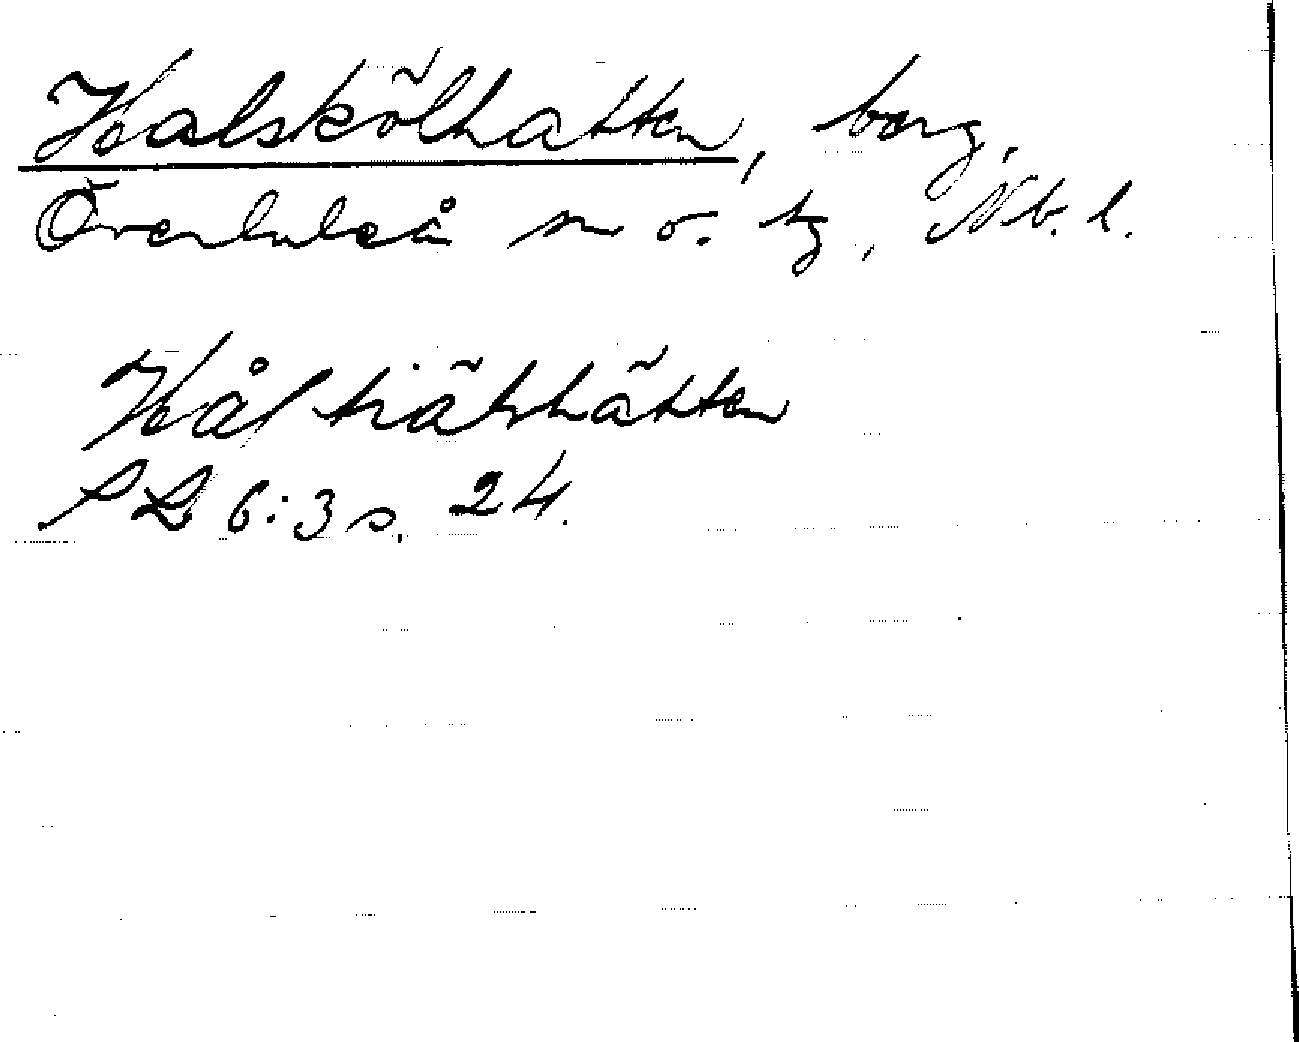 Halskölhatten, berg,
Överluleå sn o. tg, Nb. l.
Hålʃtiälhätten
SL 6:3 s. 24.